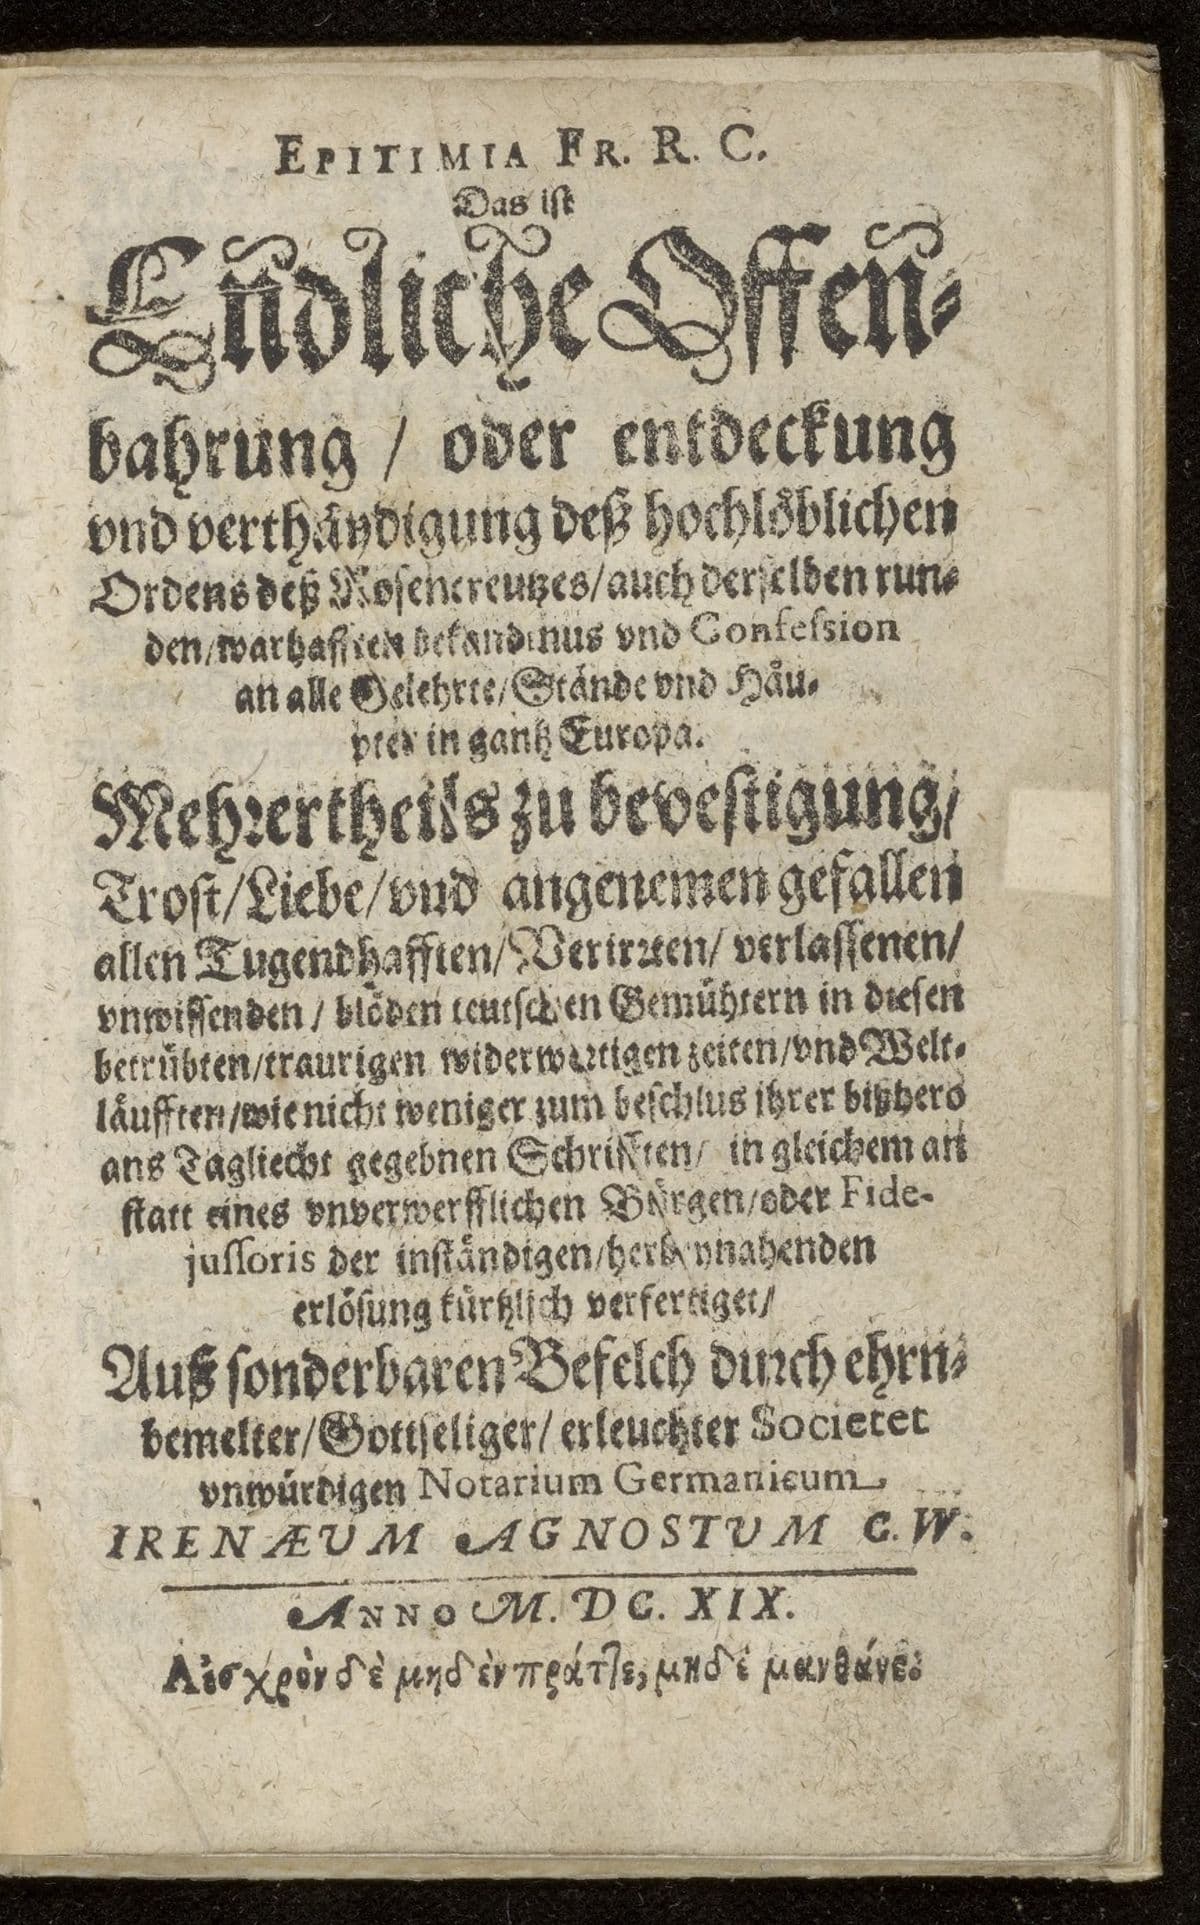 EPITIMIA FR. R. C.
Das ist
Endliche Offen-
bahrung / oder entdeckung
vnd verthäydigung deß hochlöblichen
Ordens deß Rosencreutzes/auch derselben run-
den/warhafften bekandtnus vnd Confession
an alle Gelehrte/Stände vnd Häu-
pter in gantz Europa.
Mehrertheils zu bevestigung/
Trost/Liebe/vnd angenemen gefallen
allen Tugendhafften/Verirrten/verlassenen/
vnwissenden / blöden teutschen Gemühtern in diesen
betrübten/traurigen widerwertigen zeiten/vnd Welt-
läufften/wie nicht weniger zum beschlus ihrer bißhero
ans Tagliecht gegebnen Schrifften/ in gleichem an
statt eines vnverwerfflichen Bürgen/oder Fide-
jussoris der inständigen/herbeynahenden
erlösung kürtzlich verfertiget/
Auß sonderbaren Befelch durch ehrn-
bemelter/Gottseliger/erleuchter Societet
vnwürdigen Notarium Germanicum
IRENÆUM AGNOSTUM C. W.
ANNO M. DC. XIX.
Αἰσχρὸν δὲ μηδὲν πράττε, μηδὲ μανθάνε: